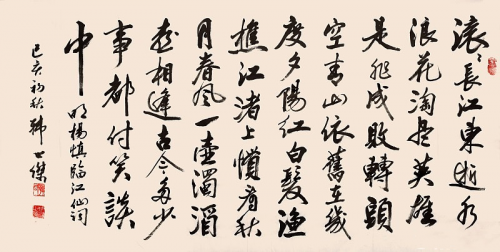 滚〻長江東逝水
浪花淘尽英雄
是非成敗轉頭
空青山依舊在幾
度夕陽紅白髮漁
樵江渚上慣看秋
月春風一壺濁酒
喜相逢古今多少
事都付笑談
中
明楊慎臨江仙詞
己亥初秋